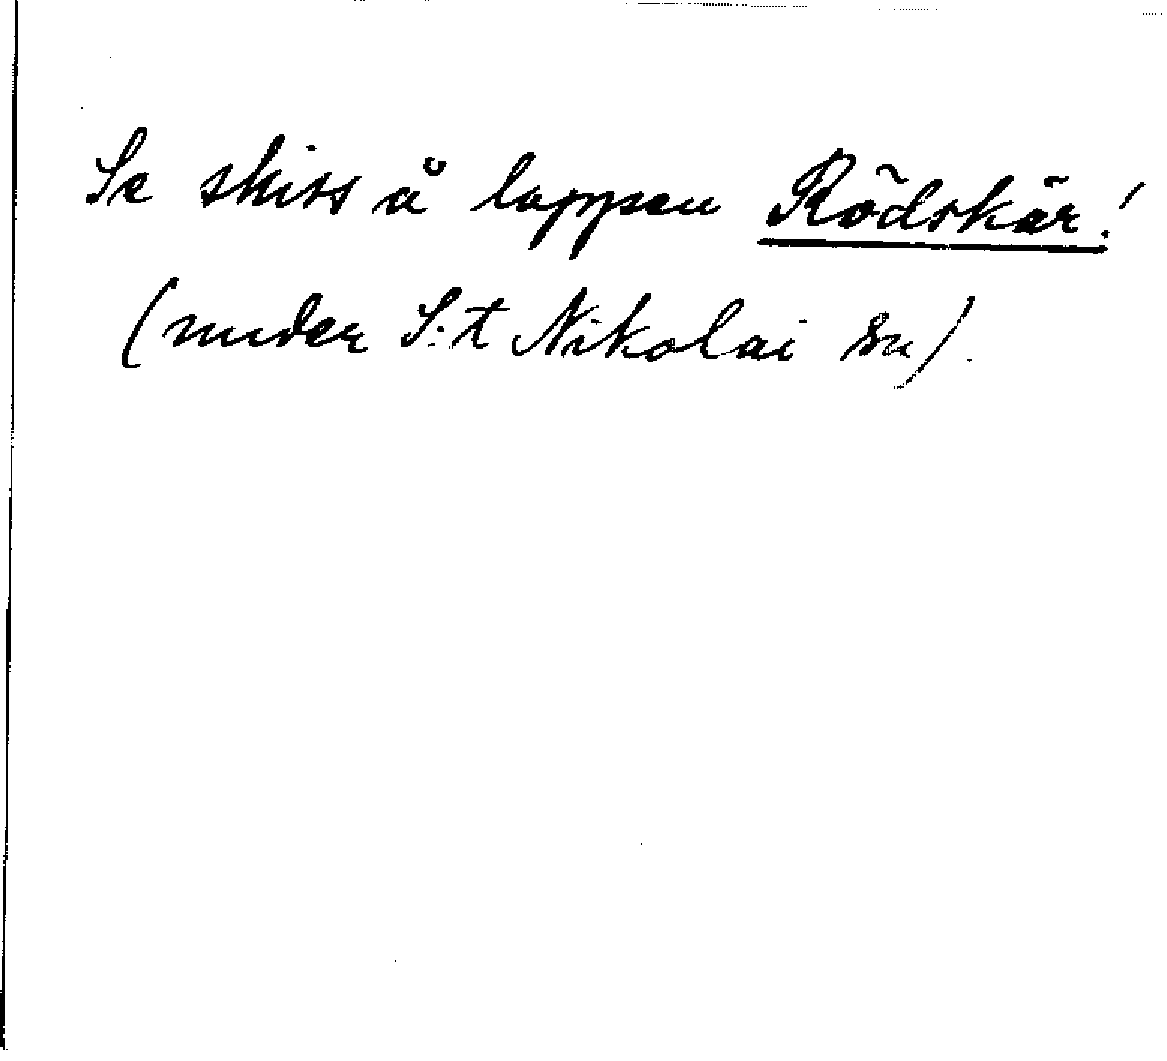 Se skiss å lappen Rödskär!
(under S:t Nikolai sn).